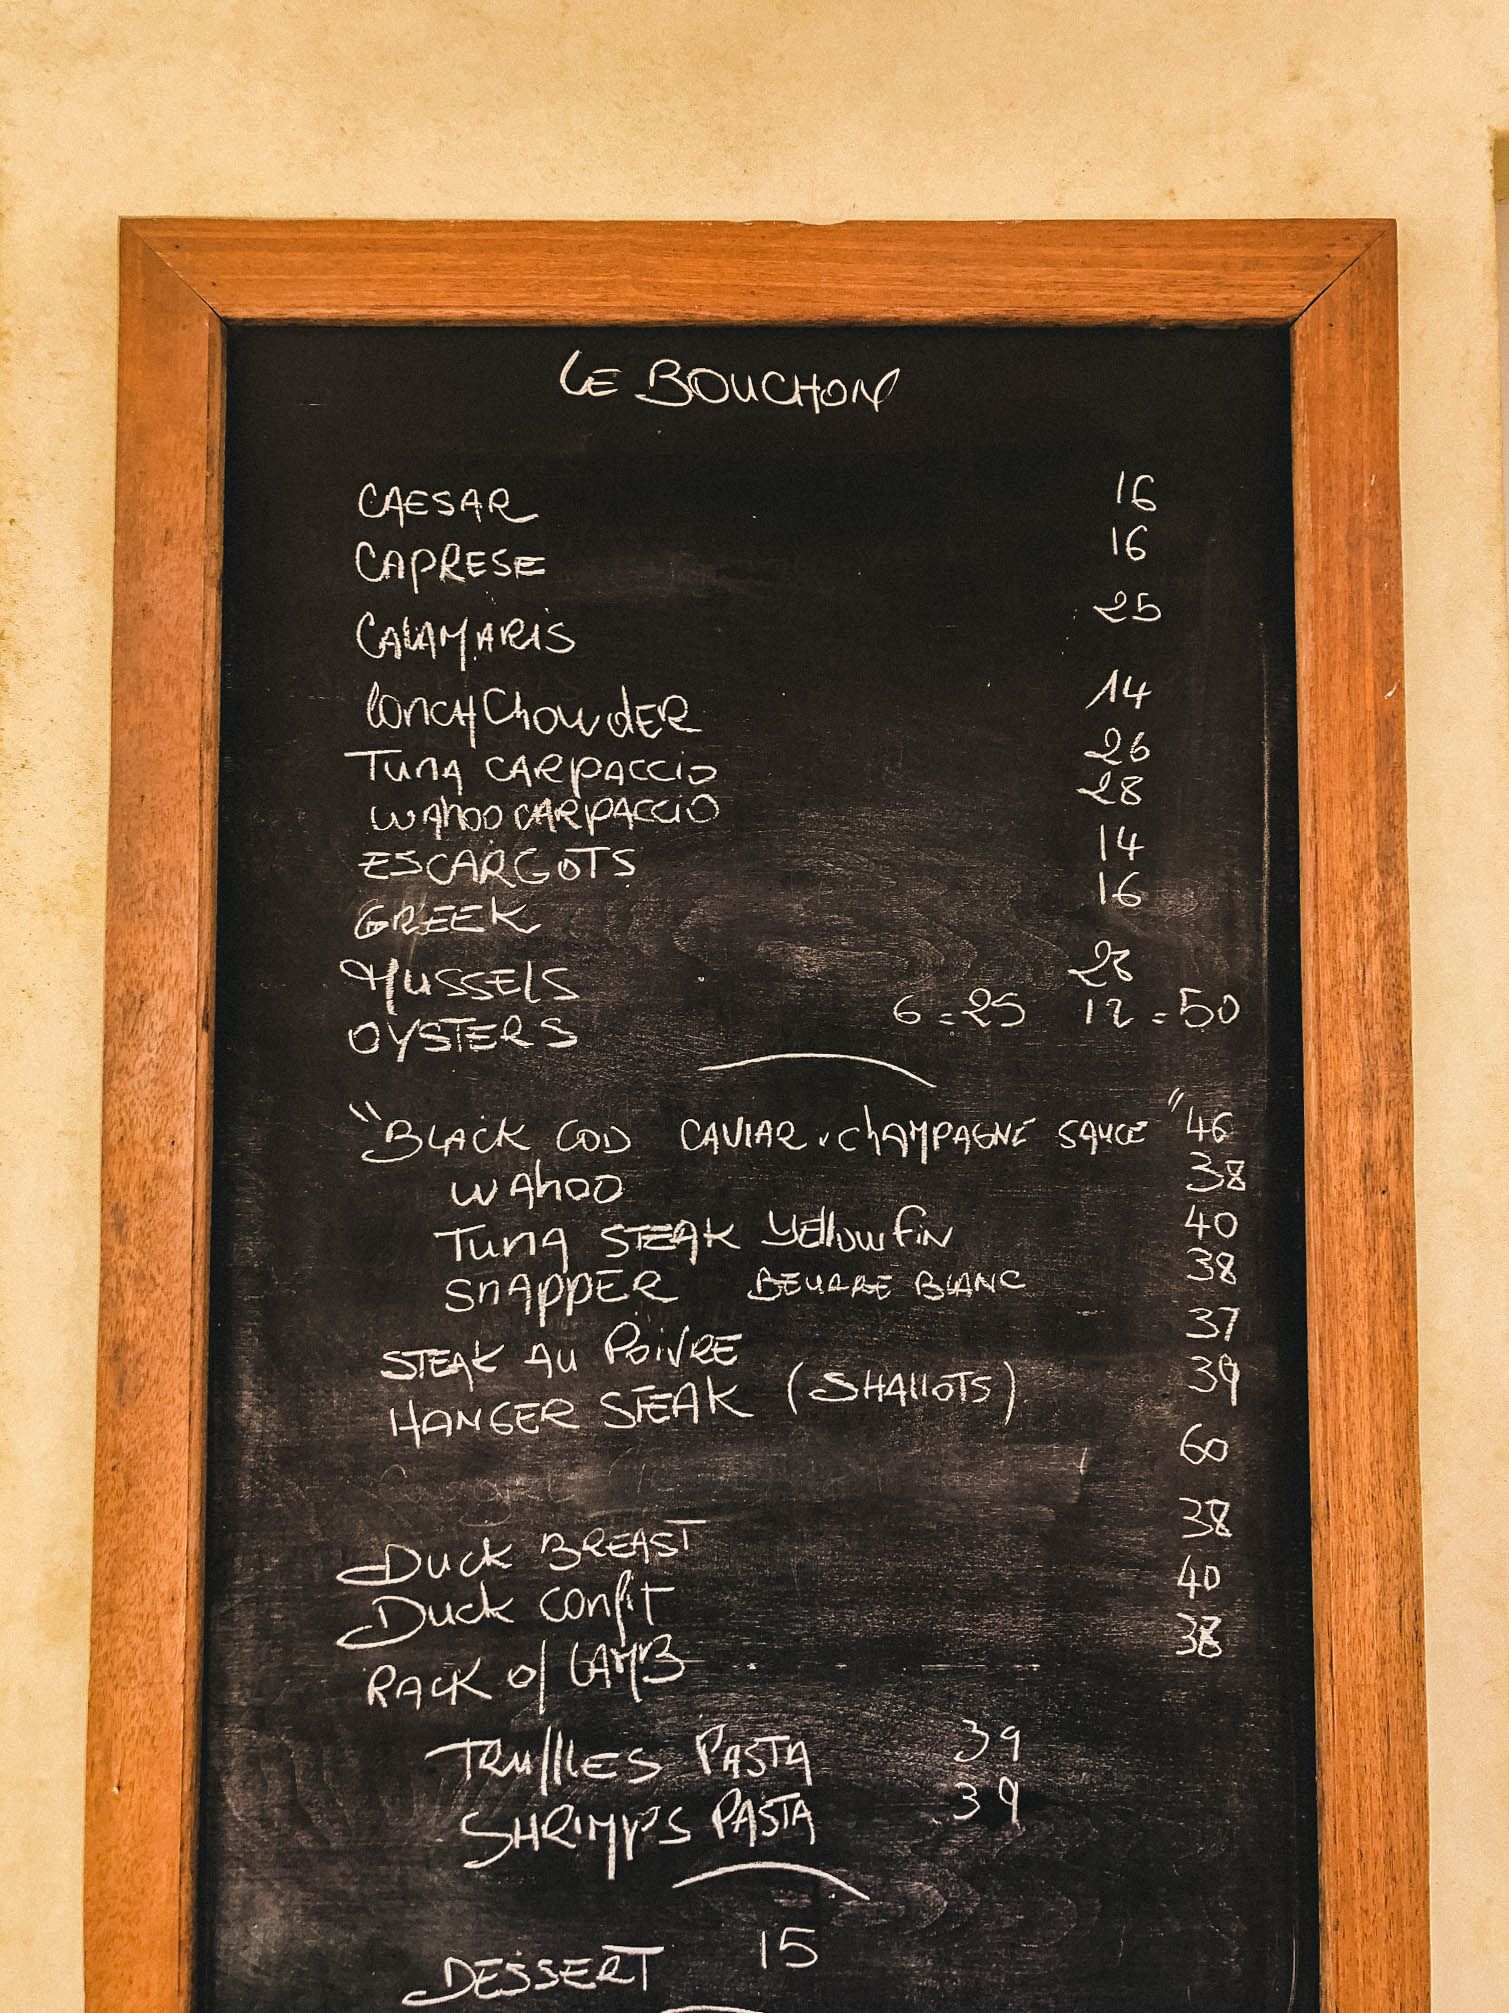 LE BOUCHON
CAESAR 16
CAPRESE 16
CALAMARIS 25
CONCH CHOWDER 14
TUNA CARPACCIO 26
WAHOO CARPACCIO 28
ESCARGOTS 14
GREEK 16
MUSSELS 28
OYSTERS 6=25 12=50
"BLACK COD CAVIAR CHAMPAGNE SAUCE" 46
WAHOO 38
TUNA STEAK YELLOWFIN 40
SNAPPER BEURRE BLANC 38
STEAK AU POIVRE 37
HANGER STEAK (SHALLOTS) 39
60
DUCK BREAST 38
DUCK CONFIT 40
RACK OF LAMB 38
TRUFFLES PASTA 39
SHRIMPS PASTA 39
DESSERT 15